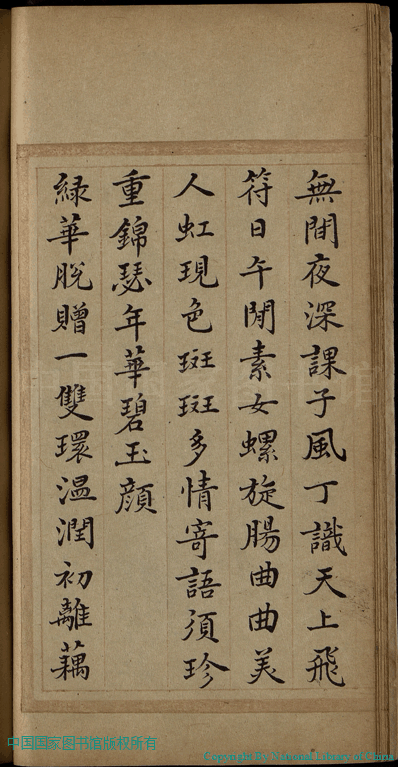 無間夜深課子風丁識天上飛
符日午閒素女螺旋腸曲曲美
人虹現色斑斑多情寄語須珍
重錦瑟年華碧玉顏
綠華脫贈一雙環温潤初離藕
中国国家图书馆版权所有
Copyright By National Library of China